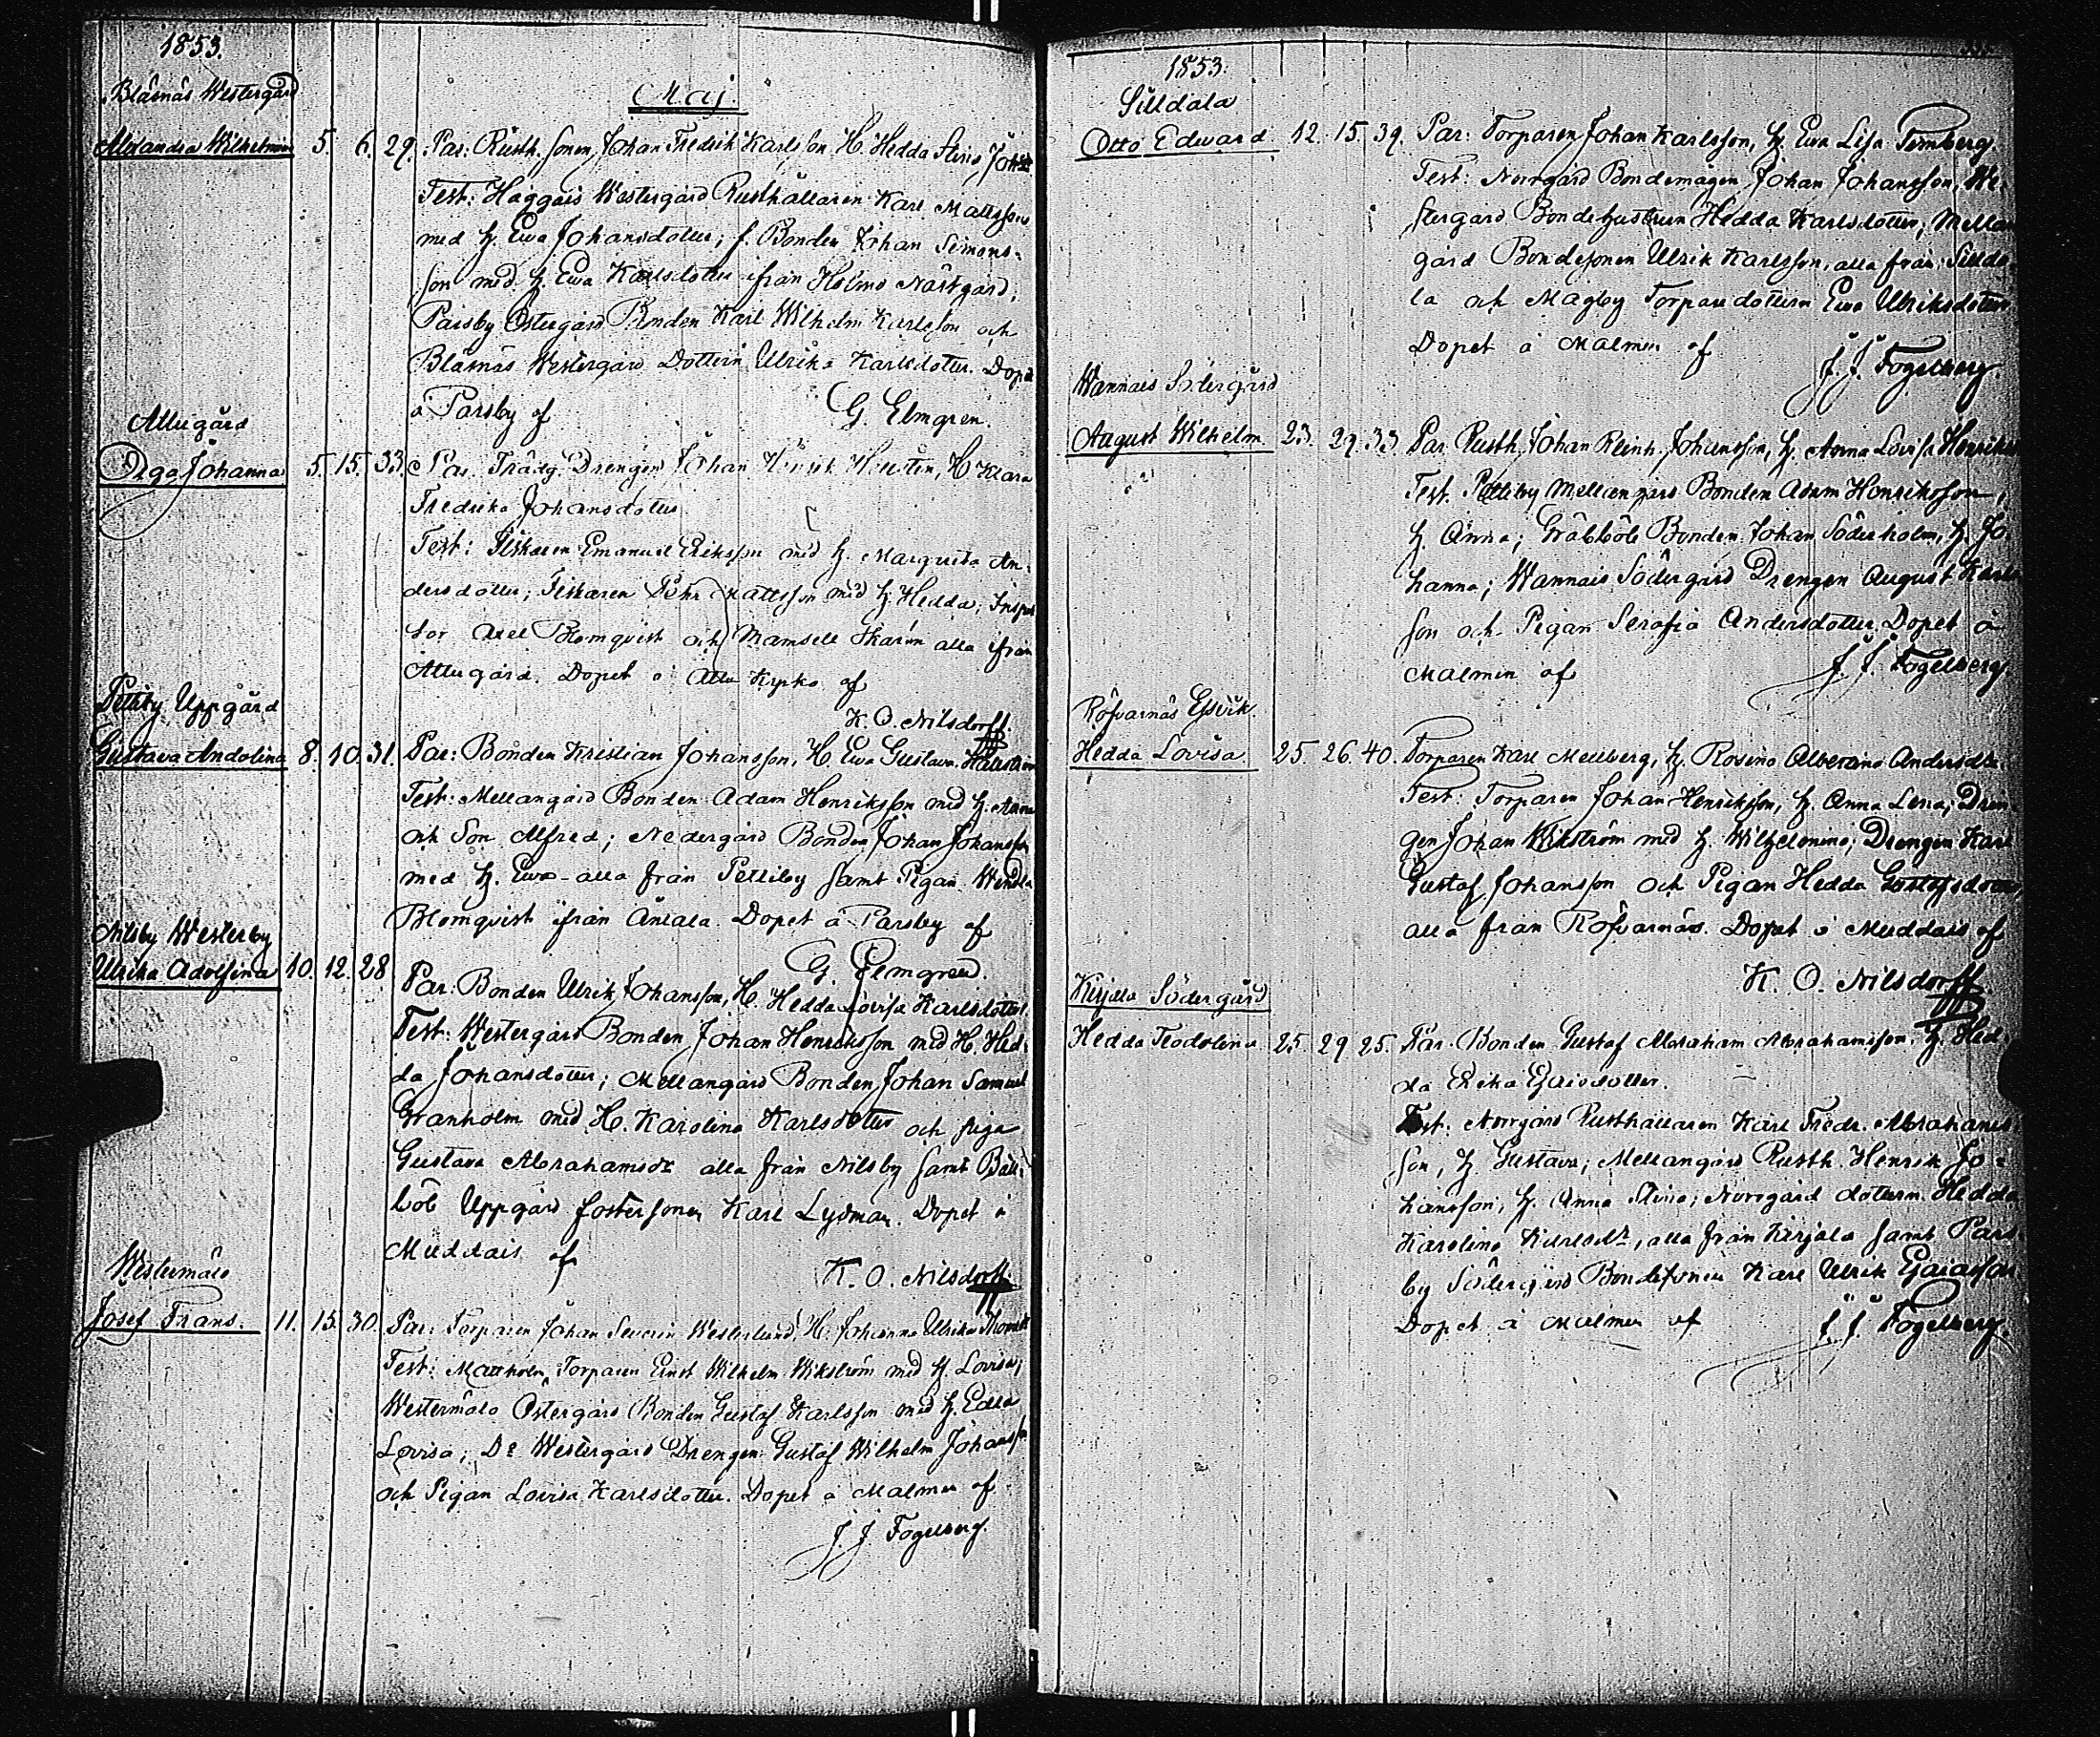 1853.
Maj.
Blåsnäs Westergård
Alexandra Wilhelmina 5. 6. 29. Par: Rusth. sonen Johan Fredrik Karlsson H. Hedda Stina
Test: Haggais Westergård Rusthållaren Karl Mattsson
med H. Ewa Johansdotter; f. Bonden Johan Simons-
son med H. Ewa Karlsdotter ifrån Holmo Norrgård;
Parsby Östergård Bonden Karl Wilhelm Karlsson och
Blåsnäs Westergård Dottern Ulrika Karlsdotter. Döpt
å Parsby af G. Elmgren.
Attugård
Olga Johanna 5. 15. 33. Par. Trädg. Drengen Johan Henrik H. Klara
Fredrika Johansdotter
Test: Fiskaren Emanuel Eriksson med H. Margreta An-
dersdotter; Fiskaren Pehr Mattsson med H. Hedda; Inspek
tor Axel Blomqvist och Mamsell alla ifrån
Attugård. Döpet i Attu af
K. O. Nilsdorff.
Pettiby Uppgård
Gustava Andolina 8. 10. 31. Par: Bonden Kristian Johansson, H. Ewa Gustava
Test: Mellangård Bonden Adam Henriksson med H. Anna
och Son Alfred; Nedergård Bonden Johan Johansson
med H. Ewa - alla från Pettiby samt Pigan Wendla
Blomqvist ifrån Antala. Döpet å Parsby af
G. Elmgren.
Nilsby Westerby
Ulrika Adolfina 10. 12. 28 Par: Bonden Ulrik Johansson, H. Hedda Lovisa Karlsdotter
Test: Westergård Bonden Johan Henriksson med H. Hed-
da Johansdotter; Mellangård Bonden Johan Samuel
Granholm med H. Karolina Karlsdotter och piga
Gustava Abrahamsdr alla från Nilsby samt
böb Uppgård fostersonen Karl Lydman. Döpet i
Muddais af K. O. Nilsdorff.
Westermälo
Josef Frans. 11. 15. 30. Par: Torparen Johan Severin Westerlund, H. Johanna Ulrika
Test: Mattholm Torparen Ernst Wilhelm Wikström med H. Lovisa;
Westermälo Östergård Bonden Gustaf Karlsson med H. Edla
Lovisa; Do Westergård Drengen Gustaf Wilhelm Johansson
och Pigan Lovisa Karlsdotter. Döpet å Malmen af
J. J. Fogelberg.
1853.
Silldala
Otto Edward 12. 15. 39. Par: Torparen Johan Karlsson, H. Ewa Lisa
Test: Norrgård Bondemågen Johan Johansson, We-
stergård Bondehustrun Hedda Karlsdotter; Mellan
gård Bondesonen Ulrik Karlsson, alla från Sillda
la och Mågby Torpardottern Ewa Ulriksdotter
Döpet å Malmen af J. J. Fogelberg.
Wannais Södergård
August Wilhelm. 23. 29. 33 Par. Rusth. Johan Reinh. Johansson, H. Anna Lovisa
Test. Pettiby Mellangård Bonden Adam Henriksson,
H. Anna; Gräbböle Bonden Johan Söderholm, H. Jo-
hanna; Wannais Södergård Drengen August Karls
son och Pigan Serafia Andersdotter Döpet å
Malmen af J. J. Fogelberg
Röfvarnäs Elsvik.
Hedda Lovisa 25. 26. 40. Torparen Karl Mellberg, H. Rosina Albertina Andersdr.
Test: Torparen Johan Henriksson, H. Anna Lena; Dren
gen Johan Wikström med H. Wilhelmina; Drengen Karl
Gustaf Johansson och Pigan Hedda Gustafsdotter,
alla från Röfvarnäs. Döpet i Muddais af
K. O. Nilsdorff.
Kirjala Södergård
Hedda Teodolina 25. 29 25. Par. Bonden Gustaf Abraham Abrahamsson, H. Hed-
da Erika
Test: Norrgård Rusthållaren Karl Fredr. Abrahams
son, H. Gustava; Mellangård Rusth. Henrik Jo-
hansson, H. Anna Stina; Norrgård dottern Hedda
Karolina Karlsdr, alla från Kirjala samt Pars-
by Södergård Bondesonen Karl Ulrik
Döpet å Malmen af J. J. Fogelberg.